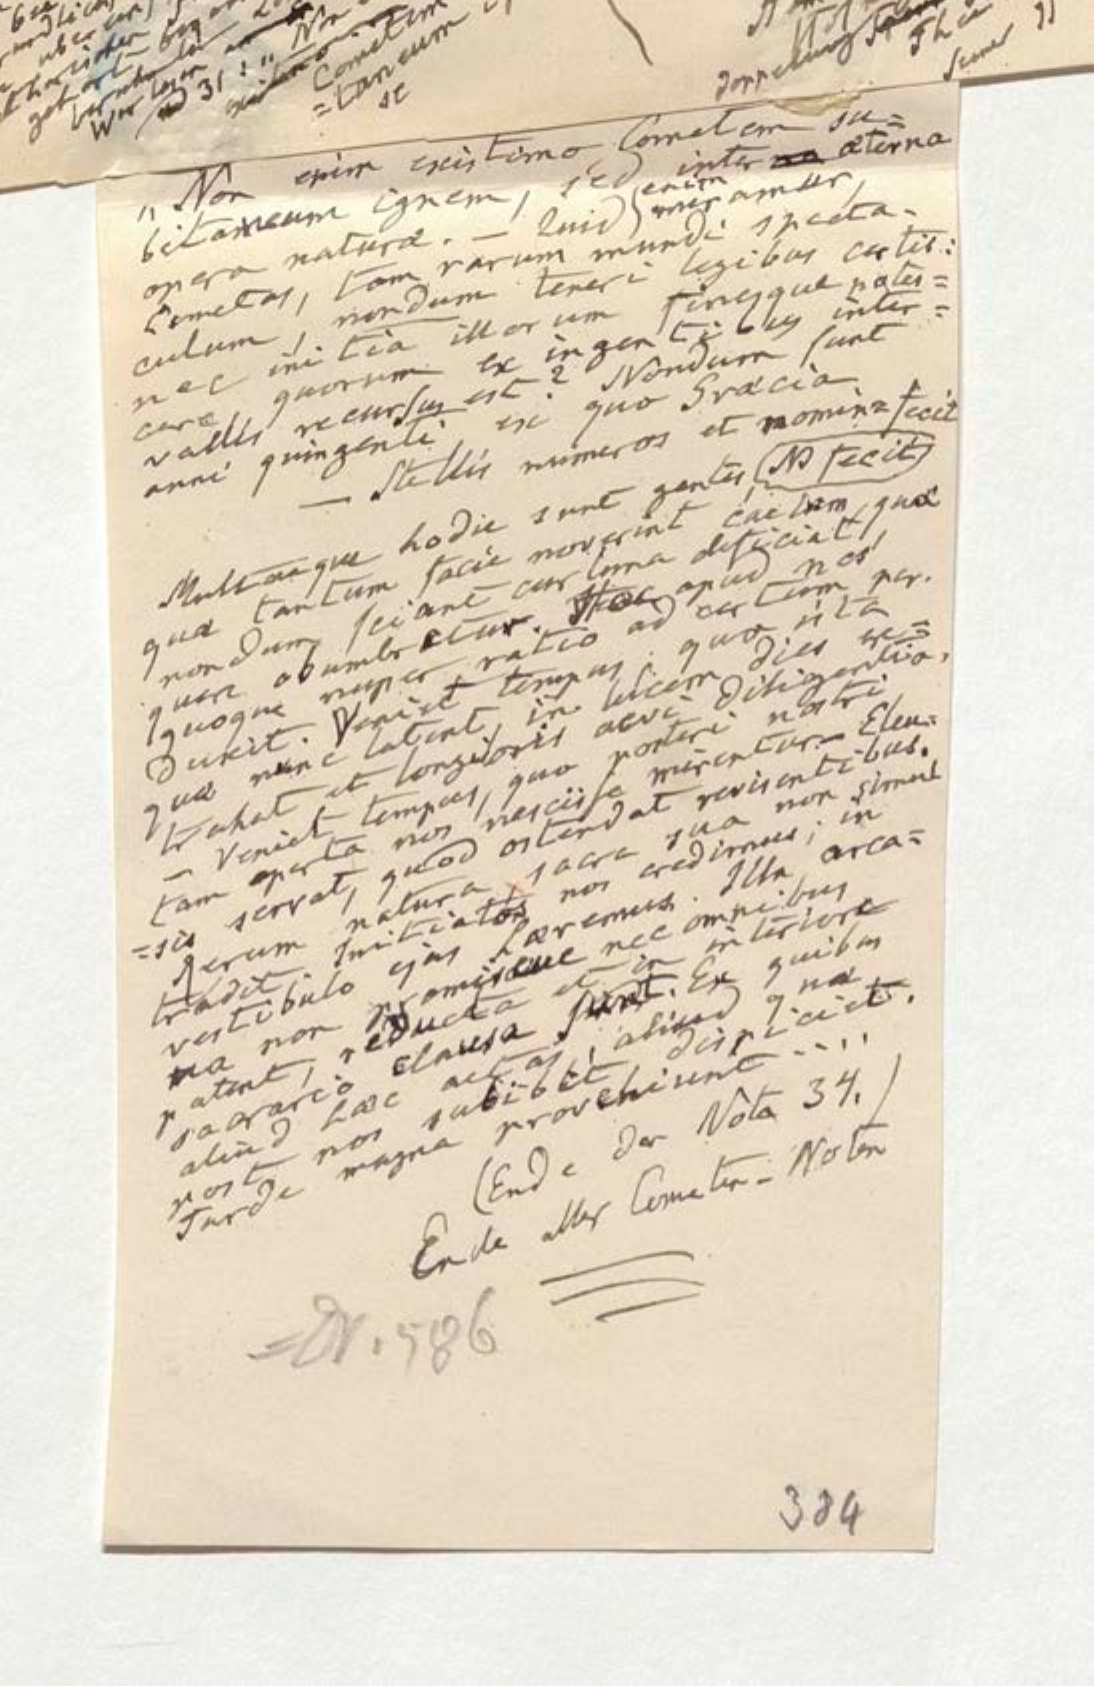 "Non enim existimo Cometem su=
bitaneum ignem, sed inter aeterna
opera naturæ. — Quid enim miramur,
Cometas, tam rarum mundi specta-
culum, nondum teneri legibus certis:
nec initia illorum finesque notes=
cere quorum ex ingentibus inter=
vallis recursus est? Nondum sunt
anni quingenti ex quo Græcia
— Stellis numeros et nomina fecit
NB fecit
Multæque hodie sunt gentes
quæ tantum facie noverint caelum, quæ
nondum sciant cur luna deficiat,
quare obumbretur. Hoc apud nos
quoque nuper ratio ad certum per-
duxit. Veniet tempus, quo ista
quæ nunc latent, in lucem dies ex=
trahat et longioris aevi diligentia.
— Veniet tempus, quo posteri nostri
tam aperta nos nescisse mirentur. — Eleu=
=sis servat, quod ostendat revisentibus.
Rerum natura sacra sua non simul
tradit. Initiatos nos credimus; in
vestibulo ejus hæremus. Illa arca=
na non promiscue nec omnibus
patent, reducta et in interiore
sacrario clausa sunt. Ex quibus
aliud hæc aetas, aliud quæ
post nos subibit, dispiciet.
Tarde magna proveniunt .....
(Ende der Nota 34.)
Ende aller Cometen-Noten
586
384